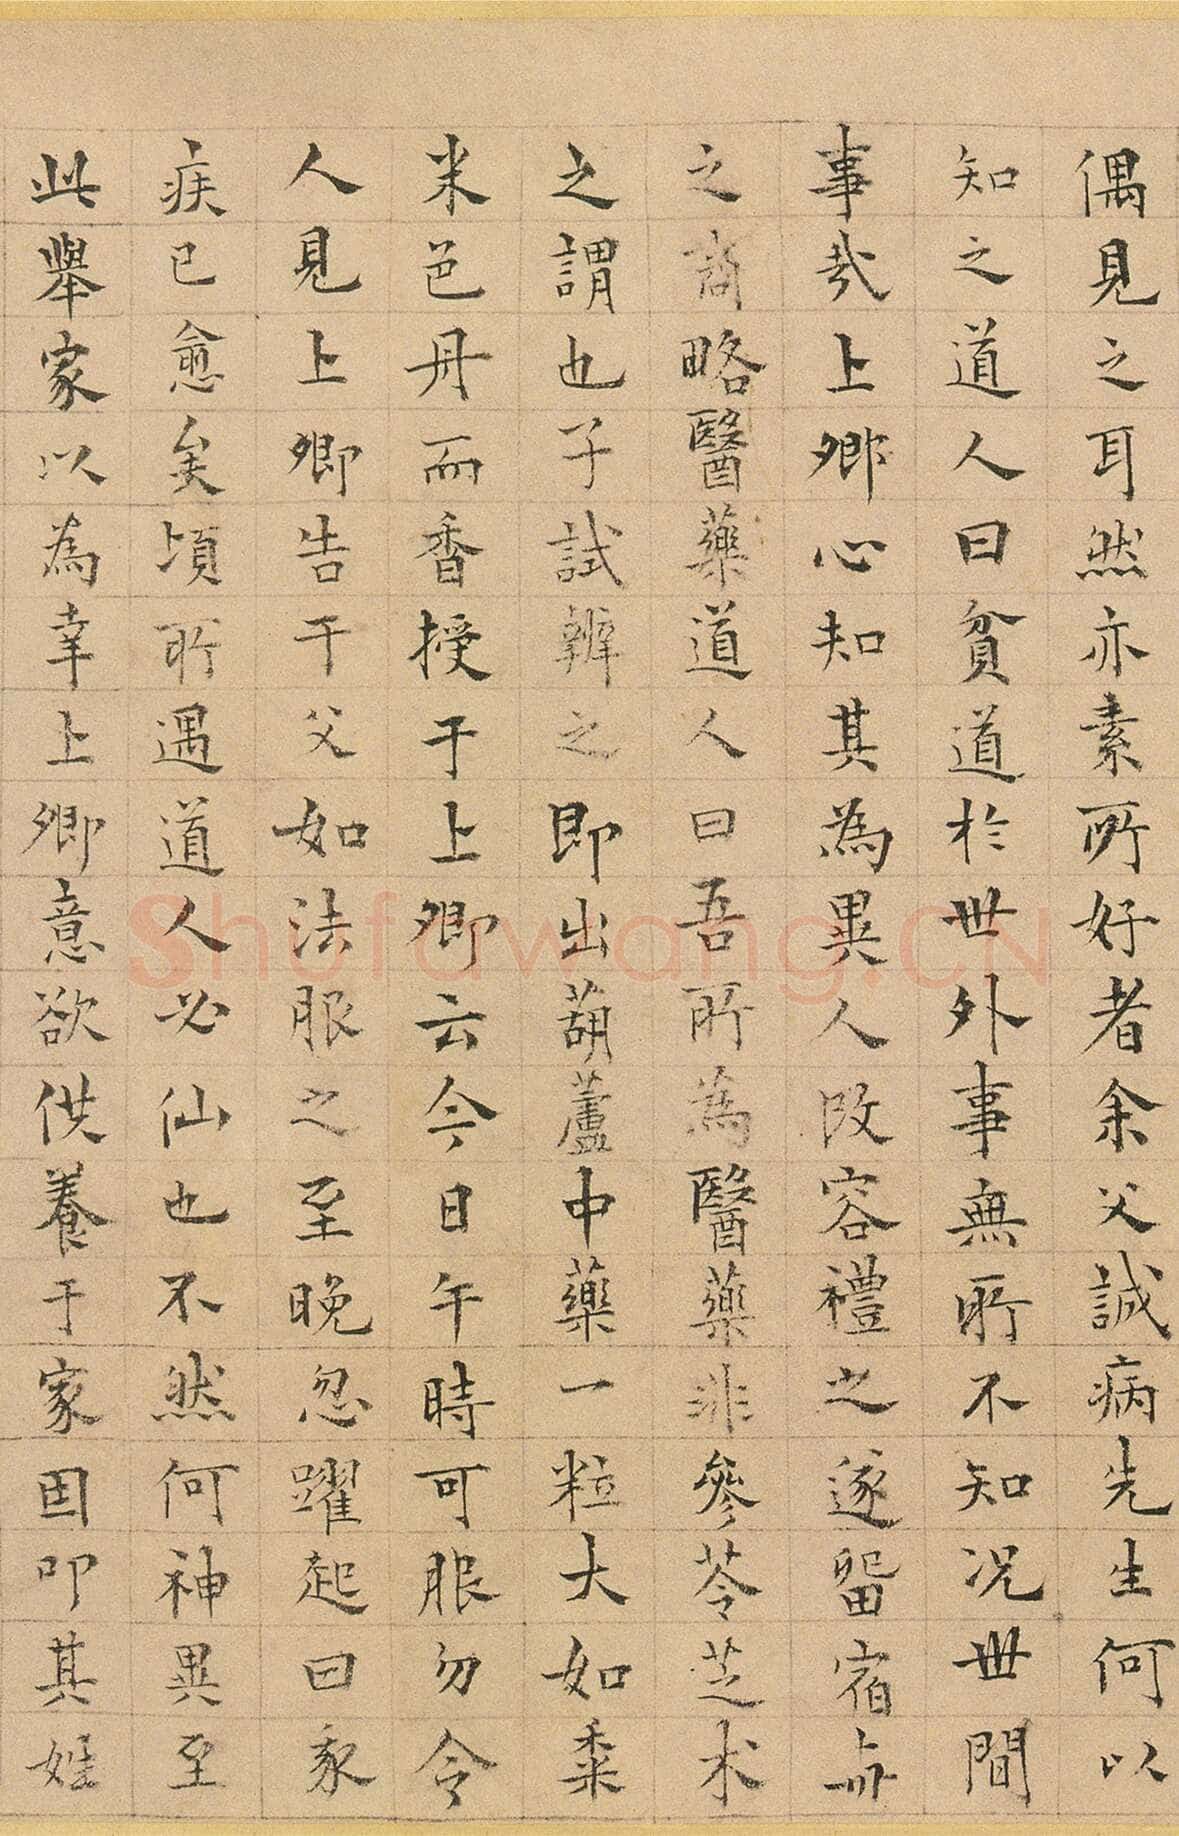 偶見之耳然亦素所好者余父誠病先生何以
知之道人曰貧道於世外事無所不知况世間
事哉上卿心知其為異人改容禮之遂留宿與
之商略醫藥道人曰吾所為醫藥非參苓芝术
之謂也子試辨之即出葫蘆中藥一粒大如黍
米色丹而香授于上卿云今日午時可服勿令
人見上卿告于父如法服之至晚忽躍起曰我
疾已愈矣頃所遇道人必仙也不然何神異至
此舉家以為幸上卿意欲供養于家因叩其姓
Shufawang.CN